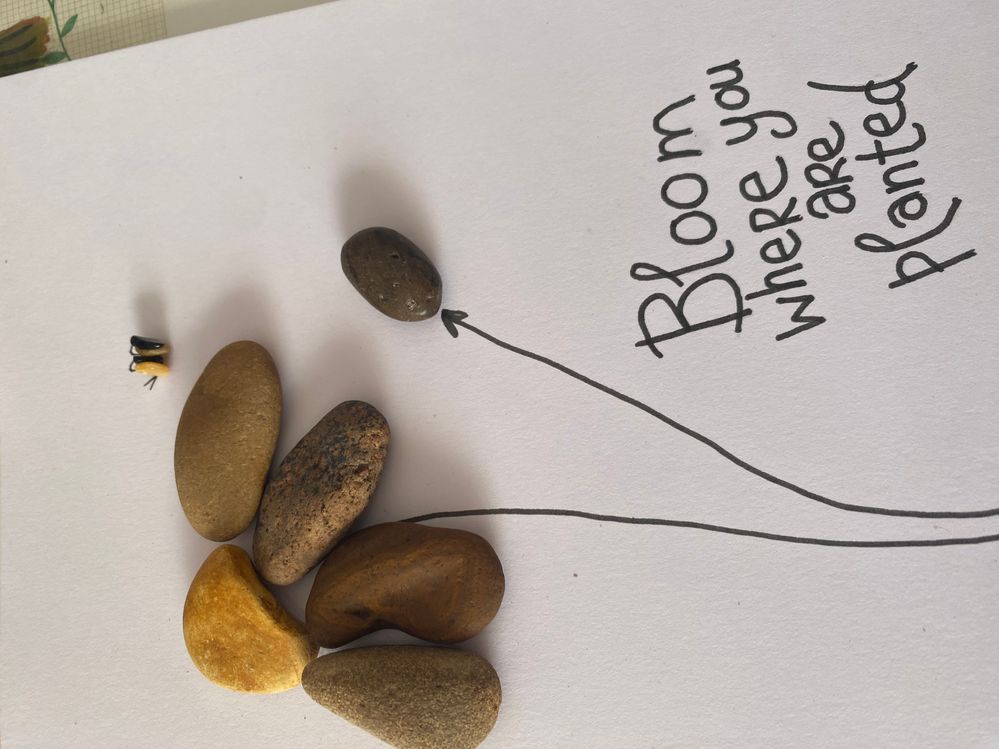 Bloom
wheRe you
aRe
planted